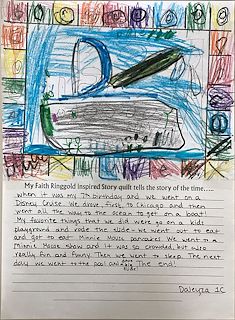 My Faith Ringgold inspired Story quilt tells the story of the time.....
when it was my 7th birthday and we went on a
Disney Cruise. We drove first to Chicago and then
went all the way to the ocean to get on a boat!
My favorite things that we did were go on a kids
playground and rode the slide. we went out to eat
and got to eat Minnie Mouse pancakes. We went to a
Minnie Mouse show and it was so crowded, but also
really fun and funny. Then we went to sleep. The next
day we went to the pool and slide! The end!
1C